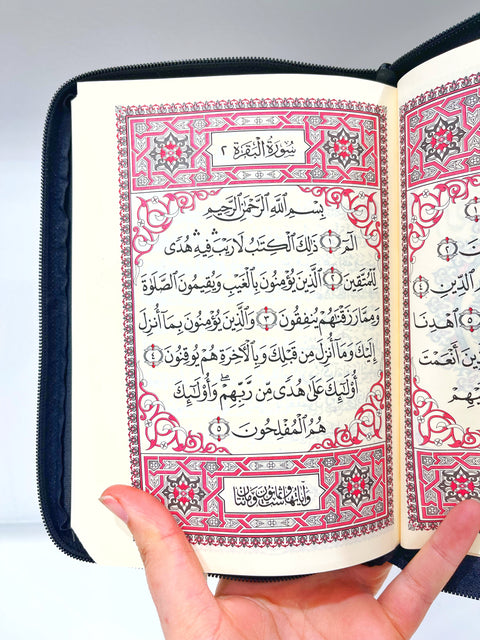 ٱلدِّينِ ٤
٥ ٱهْدِنَا
أَنْعَمْتَ
سُورَةُ الْبَقَرَةِ ٢
بِسْمِ ٱللَّهِ ٱلرَّحْمَٰنِ ٱلرَّحِيمِ
الٓمٓ ١ ذَٰلِكَ ٱلْكِتَٰبُ لَا رَيْبَ ۛ فِيهِ ۛ هُدًى
لِّلْمُتَّقِينَ ٢ ٱلَّذِينَ يُؤْمِنُونَ بِٱلْغَيْبِ وَيُقِيمُونَ ٱلصَّلَوٰةَ
وَمِمَّا رَزَقْنَٰهُمْ يُنفِقُونَ ٣ وَٱلَّذِينَ يُؤْمِنُونَ بِمَآ أُنزِلَ
إِلَيْكَ وَمَآ أُنزِلَ مِن قَبْلِكَ وَبِٱلْءَاخِرَةِ هُمْ يُوقِنُونَ ٤
أُو۟لَٰٓئِكَ عَلَىٰ هُدًى مِّن رَّبِّهِمْ ۖ وَأُو۟لَٰٓئِكَ
هُمُ ٱلْمُفْلِحُونَ ٥
وآياتها ست وثمانون ومائتان